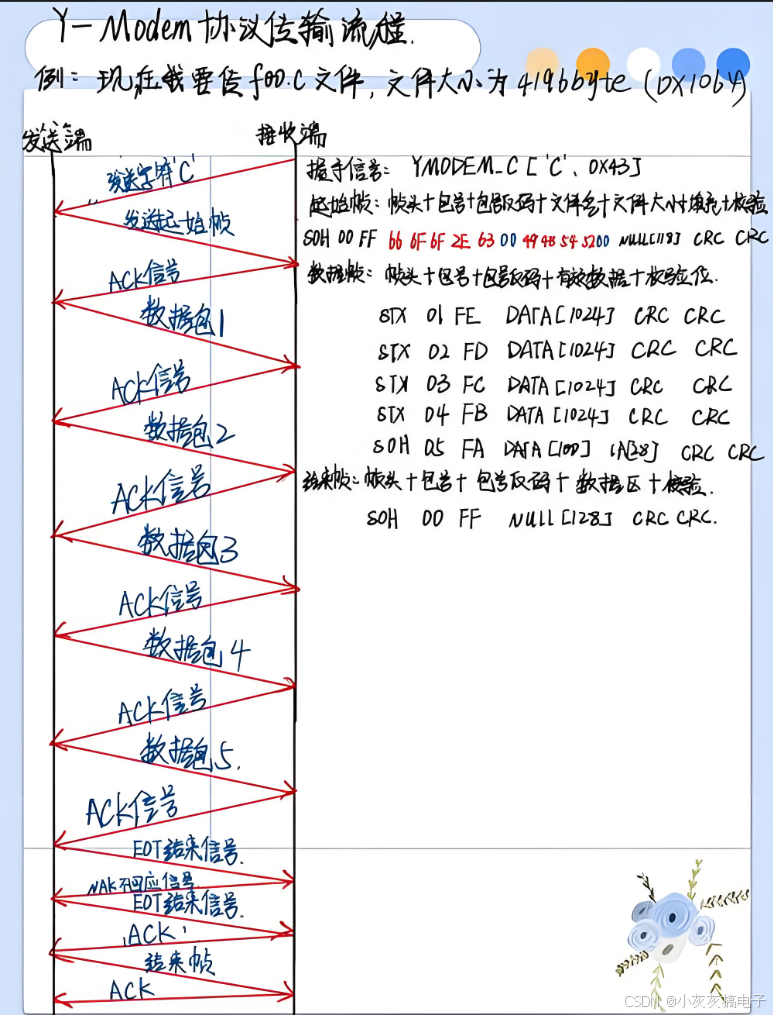 Y-Modem 协议传输流程.
例: 现在我要传 foo.c 文件, 文件大小为 4196byte (0X1064)
发送端
接收端
发送字符'C'
握手信号: YMODEM_C ['C'、0X43]
发送起始帧
起始帧: 帧头+包号+包号反码+文件名+文件大小+填充+校验
SOH 00 FF 66 6F 6F 2E 63 00 49 48 54 52 00 NULL[118] CRC CRC
ACK信号
数据帧: 帧头+包号+包号反码+有效数据+校验位.
数据包1
STX 01 FE DATA[1024] CRC CRC
STX 02 FD DATA[1024] CRC CRC
ACK信号
STX 03 FC DATA[1024] CRC CRC
数据包2
STX 04 FB DATA[1024] CRC CRC
SOH 05 FA DATA[100] CRC CRC
ACK信号
结束帧: 帧头+包号+包号反码+数据区+校验.
SOH 00 FF NULL[128] CRC CRC.
数据包3
ACK信号
数据包4
ACK信号
数据包5.
ACK信号
EOT结束信号.
NAK不回应信号.
EOT结束信号.
ACK
结束帧
ACK
CSDN @小灰灰搞电子